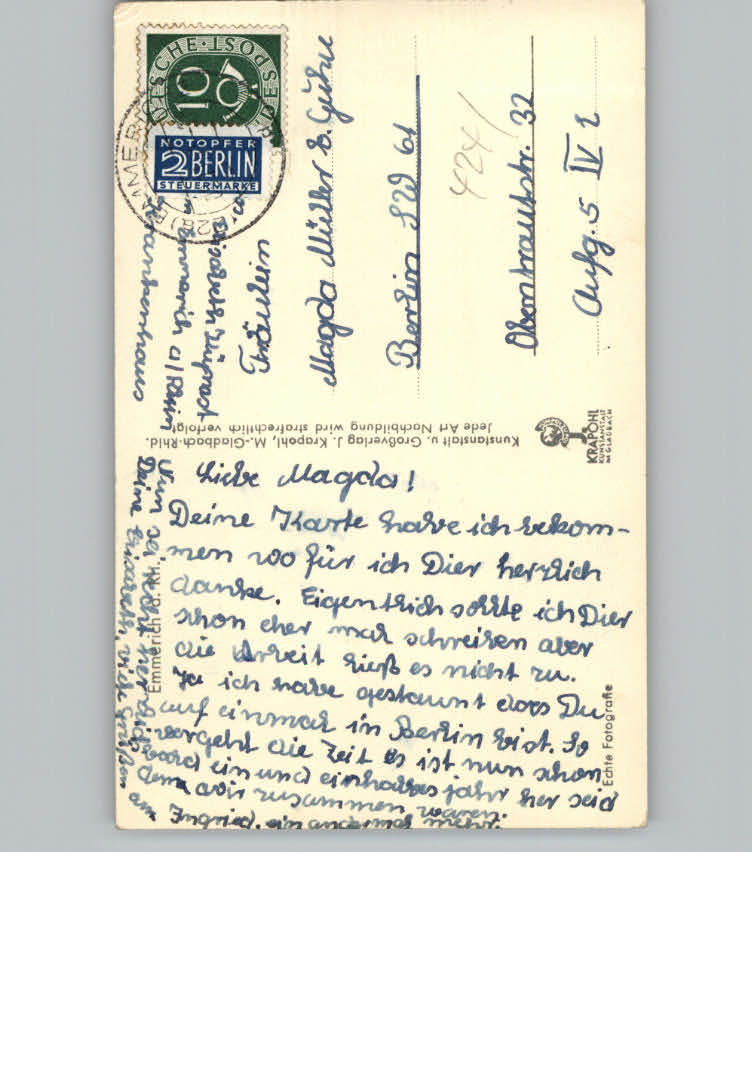 DEUTSCHE POST
10
NOTOPFER
2 BERLIN
STEUERMARKE
Elisabeth
Emmerich a/Rhein
Krankenhaus
Fräulein
Magda Müller b. Gühne
Berlin SW 61
Obentrautstr. 32
Aufg. 5 IV l
424/
Kunstanstalt u. Großverlag J. Krapohl, M.-Gladbach-Rhld.
Jede Art Nachbildung wird strafrechtlich verfolgt
KRAPOHL
KUNSTANSTALT
M.GLADBACH
Emmerich a. Rh.
Echte Fotografie
Liebe Magda!
Deine Karte habe ich bekom-
men wo für ich Dier herzlich
danke. Eigentlich sollte ich Dier
schon eher mal schreiben aber
die Arbeit ließ es nicht zu.
Ja ich habe gestaunt dass Du
auf einmal in Berlin bist. So
vergeht die Zeit Es ist nun schon
bald ein und einhalbes jahr her seid
dem wir zusammen waren.
Nun sei recht herzlich
Deine Elisabeth, viele Grüße
an Ingried. ein andermal mehr.